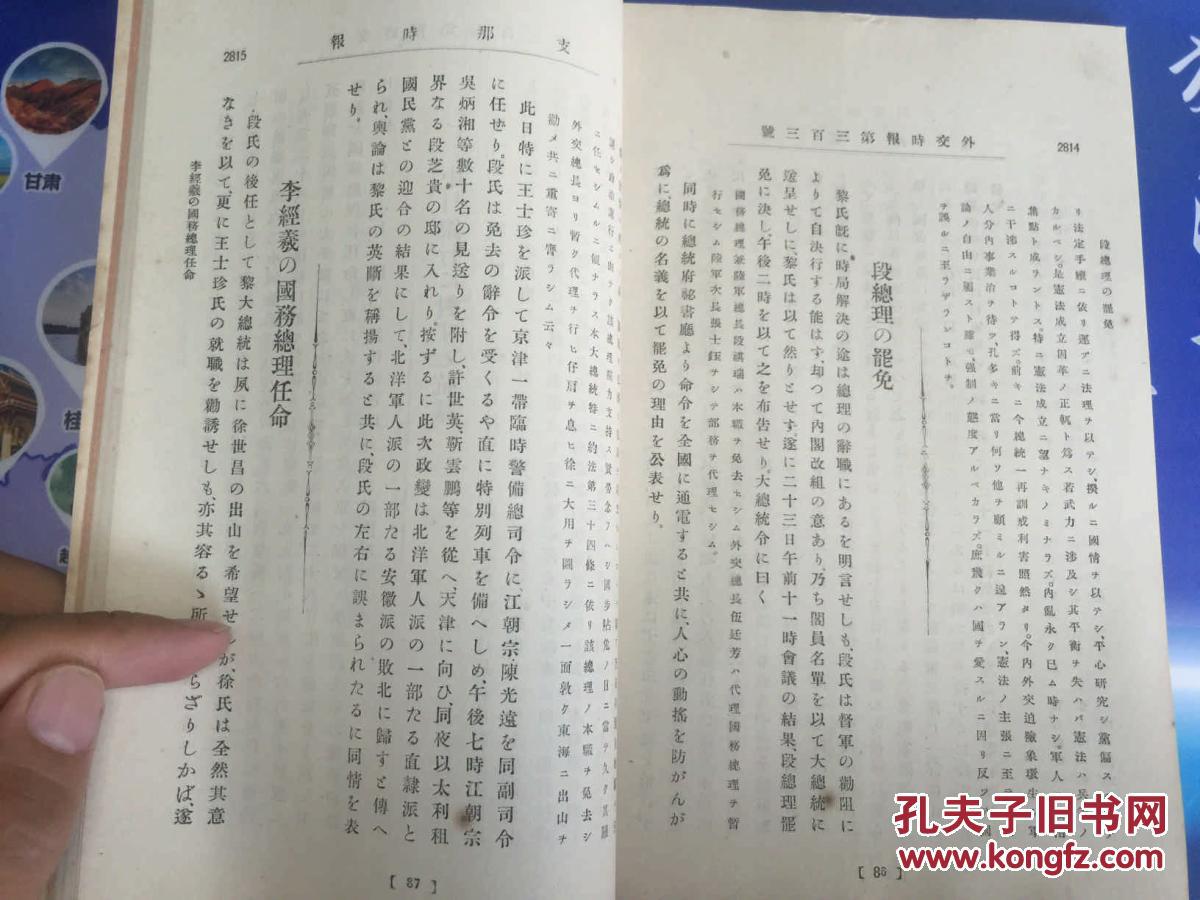 外交時報第三百三號
2814
段總理の罷免
リ法定手續ニ依リ運アニ法理ヲ以テシ、揆ルニ國情ヲ以テシ、平心研究シ黨偏ス
カルベシ。是憲法成立因革ノ正軌ト爲ス若武力ニ涉及シ其平衡ヲ失ハバ憲法ハ兵
集點ト成ラントス。特ニ憲法成立ニ望ナキノミナラズ。內亂永ク已ム時ナシ。軍人
ニ干涉スルコトヲ得ズ。前キニ今總統一再訓戒利害照然タリ。今內外交迫險象環生
人分內事業治ヲ待ツ、孔多キニ當リ何ソ他ヲ顧ミルニ遑アラン、憲法ノ主張ニ至
論ノ自由ニ屬スト雖モ、强制ノ態度アルベカラズ。庶幾クハ國ヲ愛スルニ因リ反ツ
ヲ誤ルニ至ラザランコトヲ。
段總理の罷免
黎氏既に時局解決の途は總理の辭職にあるを明言せしも、段氏は督軍の勸阻に
よりて自決行する能はす、却つて內閣改組の意あり、乃ち閣員名單を以て大總統に
送呈せしに黎氏は以て然りとせす、遂に二十三日午前十一時會議の結果、段總理罷
免に決し、午後二時を以て之を布告せり。大總統令に曰く
國務總理兼陸軍總長段祺瑞ハ本職ヲ免去セシム外交總長伍廷芳ハ代理國務總理ヲ暫
行セシム陸軍次長張士鈺ヲシテ部務ヲ代理セシム。
同時に總統府祕書廳より命令を全國に通電すると共に、人心の動搖を防がんが
爲に總統の名義を以て罷免の理由を公表せり。
[ 86 ]
支那時報
2815
ニ任セシムルニ
外交總長ヨリ暫ク代理ヲ行ヒ仔肩ヲ息ヒ徐ニ大用ヲ圖ラシメ一面敦ク東海ニ出山ヲ
勸メ共ニ重寄ニ膺ラシム云々
此日特に王士珍を派して京津一帶臨時警備總司令に、江朝宗・陳光遠を同副司令
に任せり。段氏は免去の辭令を受くるや直に特別列車を備へしめ、午後七時江朝宗
吳炳湘等數十名の見送りを附し、許世英、靳雲鵬等を從へ、天津に向ひ、同夜以太利租
界なる段芝貴の邸に入れり。按ずるに此次政變は北洋軍人派の一部たる直隸派と
國民黨との迎合の結果にして、北洋軍人派の一部たる安徽派の敗北に歸すと傳へ
られ、輿論は黎氏の英斷を稱揚すると共に、段氏の左右に誤まられたるに同情を表
せり。
李經羲の國務總理任命
段氏の後任として黎大總統は夙に徐世昌の出山を希望せ が徐氏は全然其意
なきを以て、更に王士珍氏の就職を勸誘せしも、亦其容るゝ所 らざりしかば、遂
李經羲の國務總理任命
[ 87 ]
甘肃
桂
孔夫子旧书网
www.kongfz.com